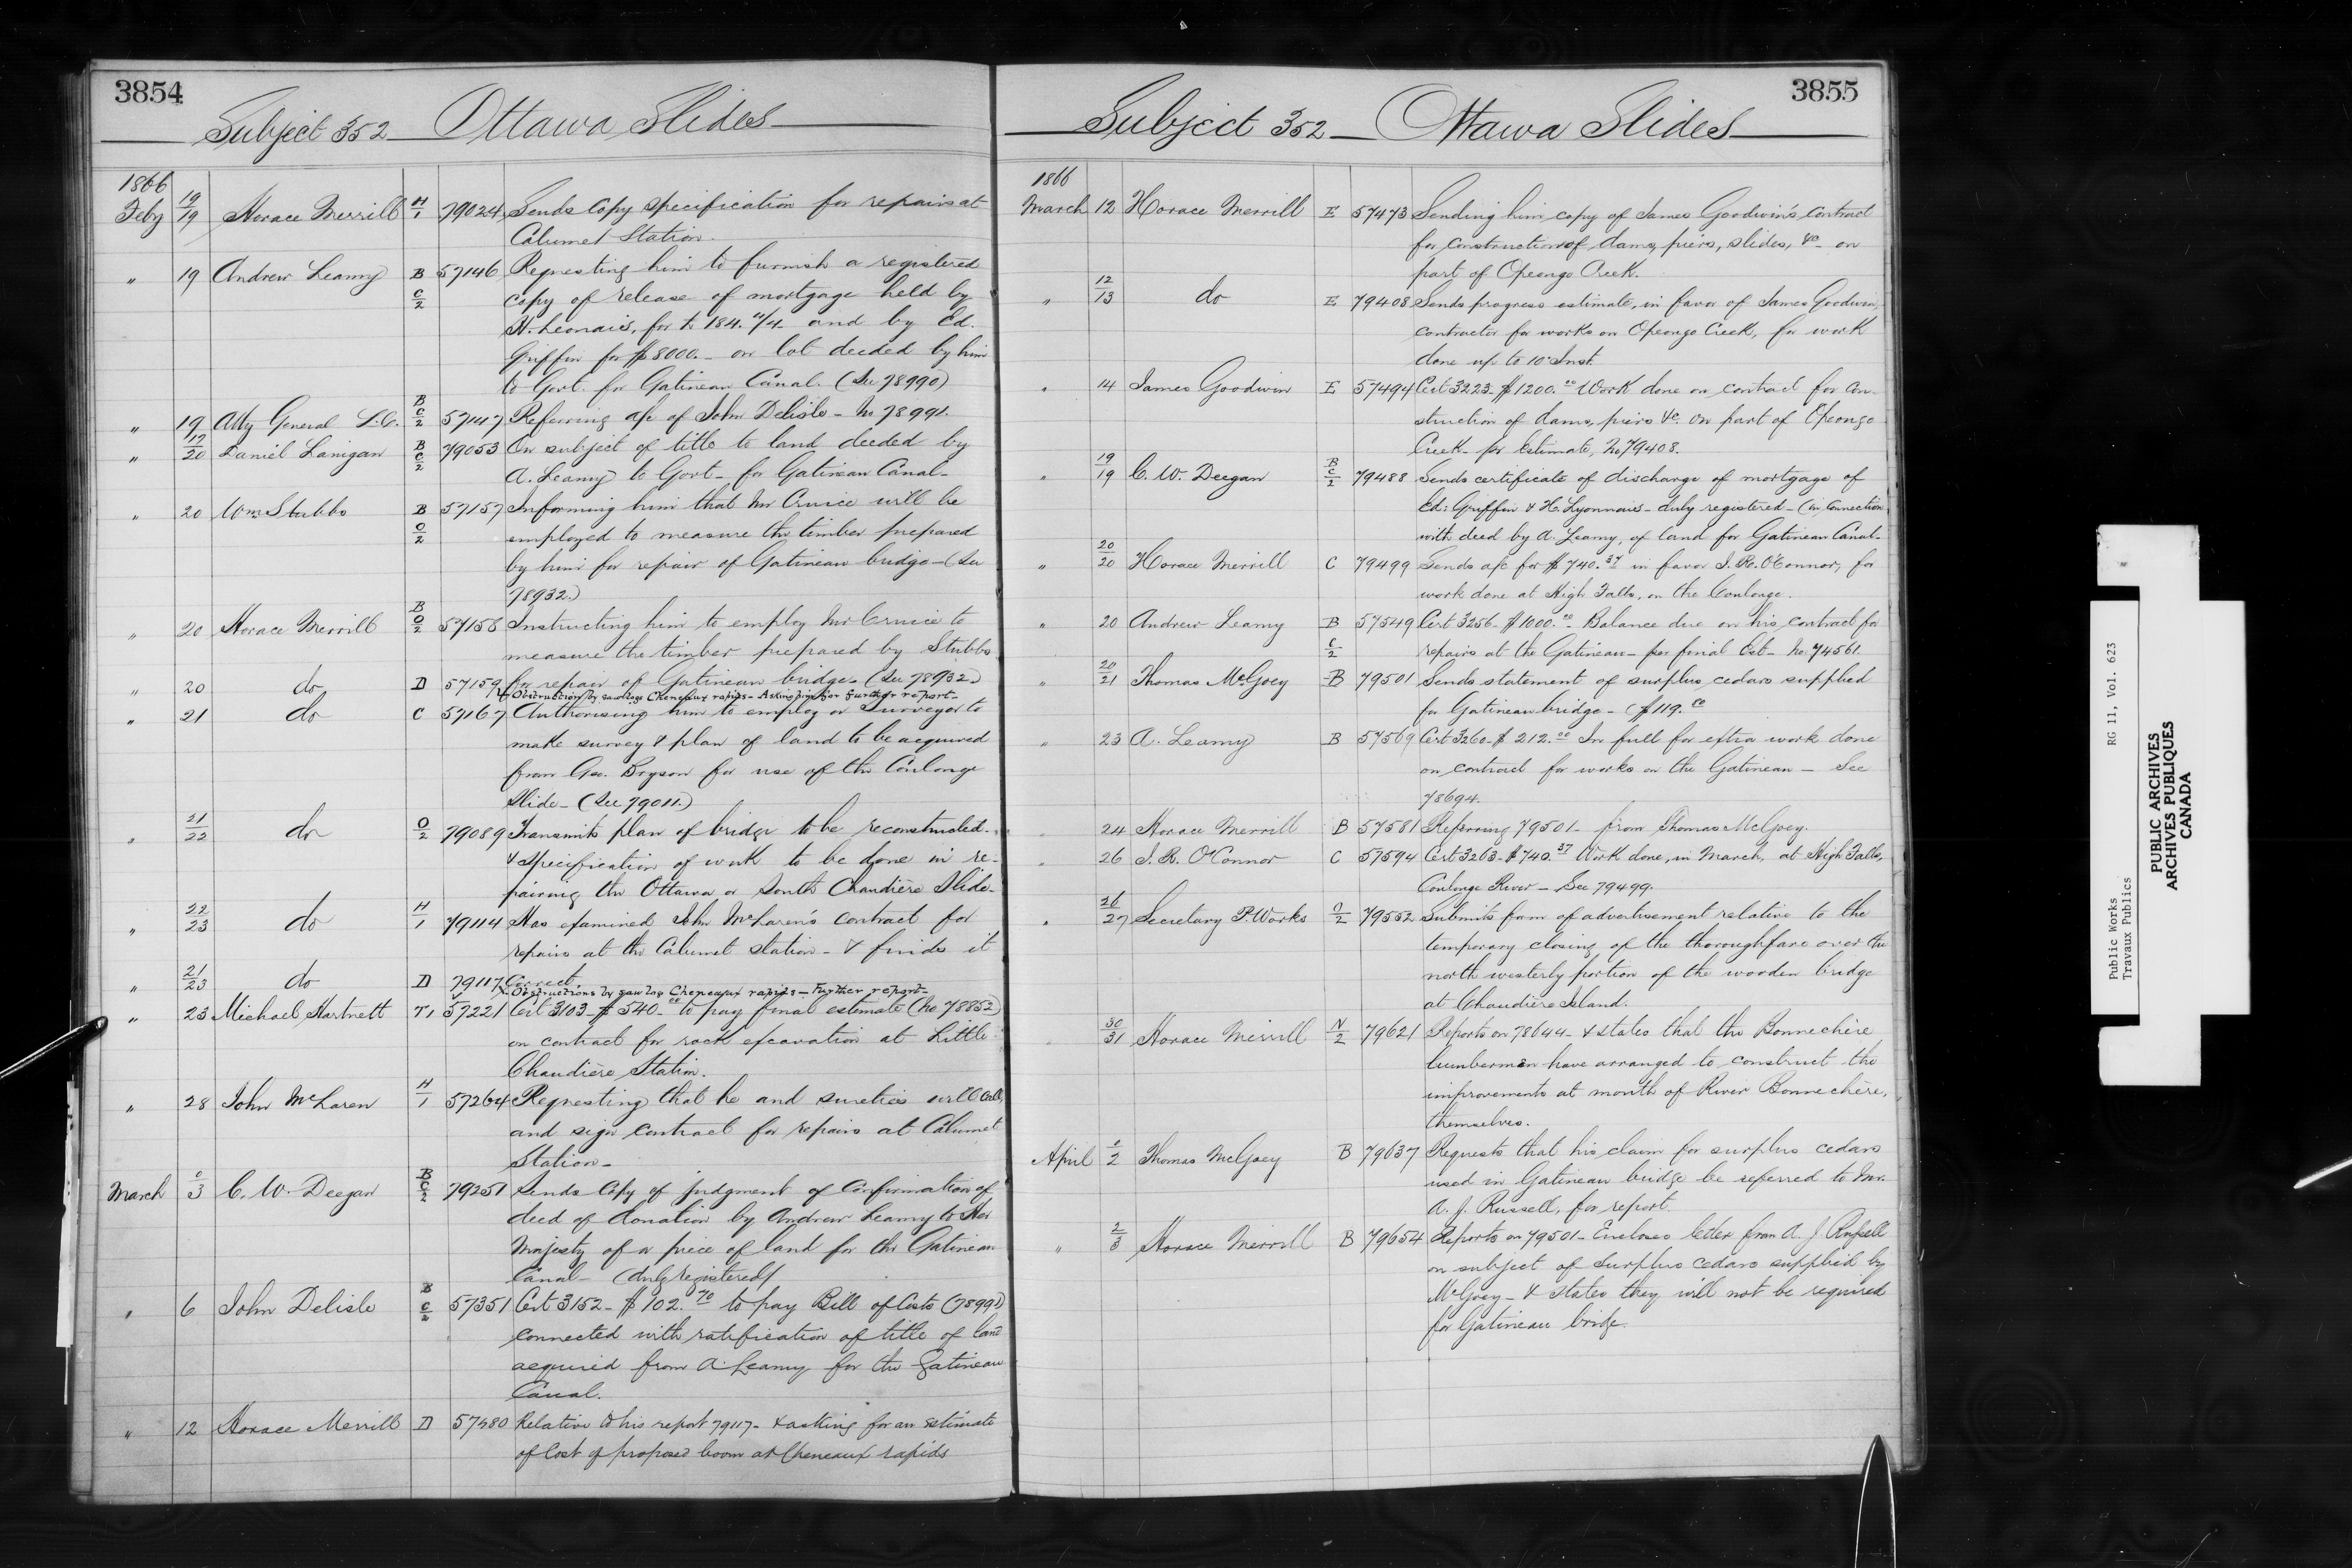 3854
Subject 352 Ottawa Slides
1866
Feby 19/19 Horace Merrill H/1 79024 Sends copy specification for repairs at
Calumet Station.
" 19 Andrew Leamy B C/2 57146 Requesting him to furnish a registered
copy of release of mortgage held by
H. Leonais, for and by Ed.
Griffin for $8000. on lot deeded by him
to Govt. for Gatineau Canal. (See 78990)
" 19 Atty General L.C. B C/2 57147 Referring a/c of John Delisle - No 78991.
" 19/20 Daniel Lanigan B C/2 79053 On subject of title to land deeded by
A. Leamy to Govt - for Gatineau Canal -
" 20 Wm Stubbs B O/2 57157 Informing him that Mr Cruice will be
employed to measure the timber prepared
by him for repair of Gatineau bridge - (See
78932.)
" 20 Horace Merrill B O/2 57158 Instructing him to employ Mr Cruice to
measure the timber prepared by Stubbs
for repair of Gatineau bridge. (See 78932.)
" 20 do D 57159 Obstruction by sawlogs Cheneaux rapids - Asking him for further report -
" 21 do C 57167 Authorising him to employ a Surveyor to
make survey & plan of land to be acquired
from Geo. Bryson for use of the Coulonge
Slide - (See 79011.)
" 21/22 do O/2 79089 Transmits plan of bridge to be reconstructed -
& specification of work to be done in re-
pairing the Ottawa or South Chaudière Slide -
" 22/23 do H/1 79114 Has examined John McLaren's contract for
repairs at the Calumet Station - & finds it
Correct.
" 21/23 do D 79117 Obstructions by saw log Cheneaux rapids - Further report -
" 23 Michael Hartnett T1 57221 Cert 3103 - $540.00 to pay final estimate (No 78852)
on contract for rock excavation at Little
Chaudière Station.
" 28 John McLaren H/1 57264 Requesting that he and sureties will call
and sign contract for repairs at Calumet
Station -
March /3 C. W. Deegan B C/2 79251 Sends Copy of judgment of Confirmation of
deed of donation by Andrew Leamy to Her
Majesty of a piece of land for the Gatineau
Canal - (duly registered)
" 6 John Delisle B C/2 57351 Cert 3152 - $102.70 to pay Bill of Costs (78991)
connected with ratification of title of land
acquired from A. Leamy for the Gatineau
Canal.
" 12 Horace Merrill D 57480 Relative to his report 79117 - & asking for an estimate
of Cost of proposed boom at Cheneaux rapids
3855
Subject 352 - Ottawa Slides
1866
March 12 Horace Merrill E 57473 Sending him copy of James Goodwin's contract
for construction of dams, piers, slides, &c - on
part of Opeongo Creek.
" 12/13 do E 79408 Sends progress estimate, in favor of James Goodwin,
contractor for works on Opeongo Creek, for work
done up to 10 Inst.
" 14 James Goodwin E 57494 Cert 3223 - $1200.00 Work done on contract for con-
struction of dams, piers &c. on part of Opeongo
Creek - per Estimate, No 79408.
" 19/19 C. W. Deegan B C/2 79488 Sends certificate of discharge of mortgage of
Ed: Griffin & H. Lyonnais - duly registered - (in connection
with deed by A. Leamy, of land for Gatineau Canal -
" 20/20 Horace Merrill C 79499 Sends a/c for $740.37 in favor J. R. O'Connor, for
work done at High Falls, on the Coulonge.
" 20 Andrew Leamy B C/2 57549 Cert 3256 - $1000.00 Balance due on his contract for
repairs at the Gatineau - per final Est - No. 74561.
" 20/21 Thomas McGoey B 79501 Sends statement of surplus cedars supplied
for Gatineau bridge - ($119.00
" 23 A. Leamy B 57569 Cert 3260 - $212.00 In full for extra work done
on contract for works on the Gatineau - See
78694.
" 24 Horace Merrill B 57581 Referring 79501 - from Thomas McGoey.
" 26 J. R. O'Connor C 57594 Cert 3263 - $740.37 Work done, in March, at High Falls,
Coulonge River - See 79499.
" 26/27 Secretary P. Works O/2 79552 Submits form of advertisement relative to the
temporary closing of the thoroughfare over the
north westerly portion of the wooden bridge
at Chaudière Island.
30/31 Horace Merrill N/2 79621 Reports on 78644 - & states that the Bonnechère
lumbermen have arranged to construct the
improvements at mouth of River Bonnechère,
themselves.
April /2 Thomas McGoey B 79637 Requests that his claim for surplus cedars
used in Gatineau bridge be referred to Mr.
A. J. Russell, for report.
" 2/3 Horace Merrill B 79654 Reports on 79501 - Encloses letter from A. J. Russell
on subject of surplus cedars supplied by
McGoey - & states they will not be required
for Gatineau bridge.
Public Works
Travaux Publics
RG 11, Vol. 623
PUBLIC ARCHIVES
ARCHIVES PUBLIQUES
CANADA